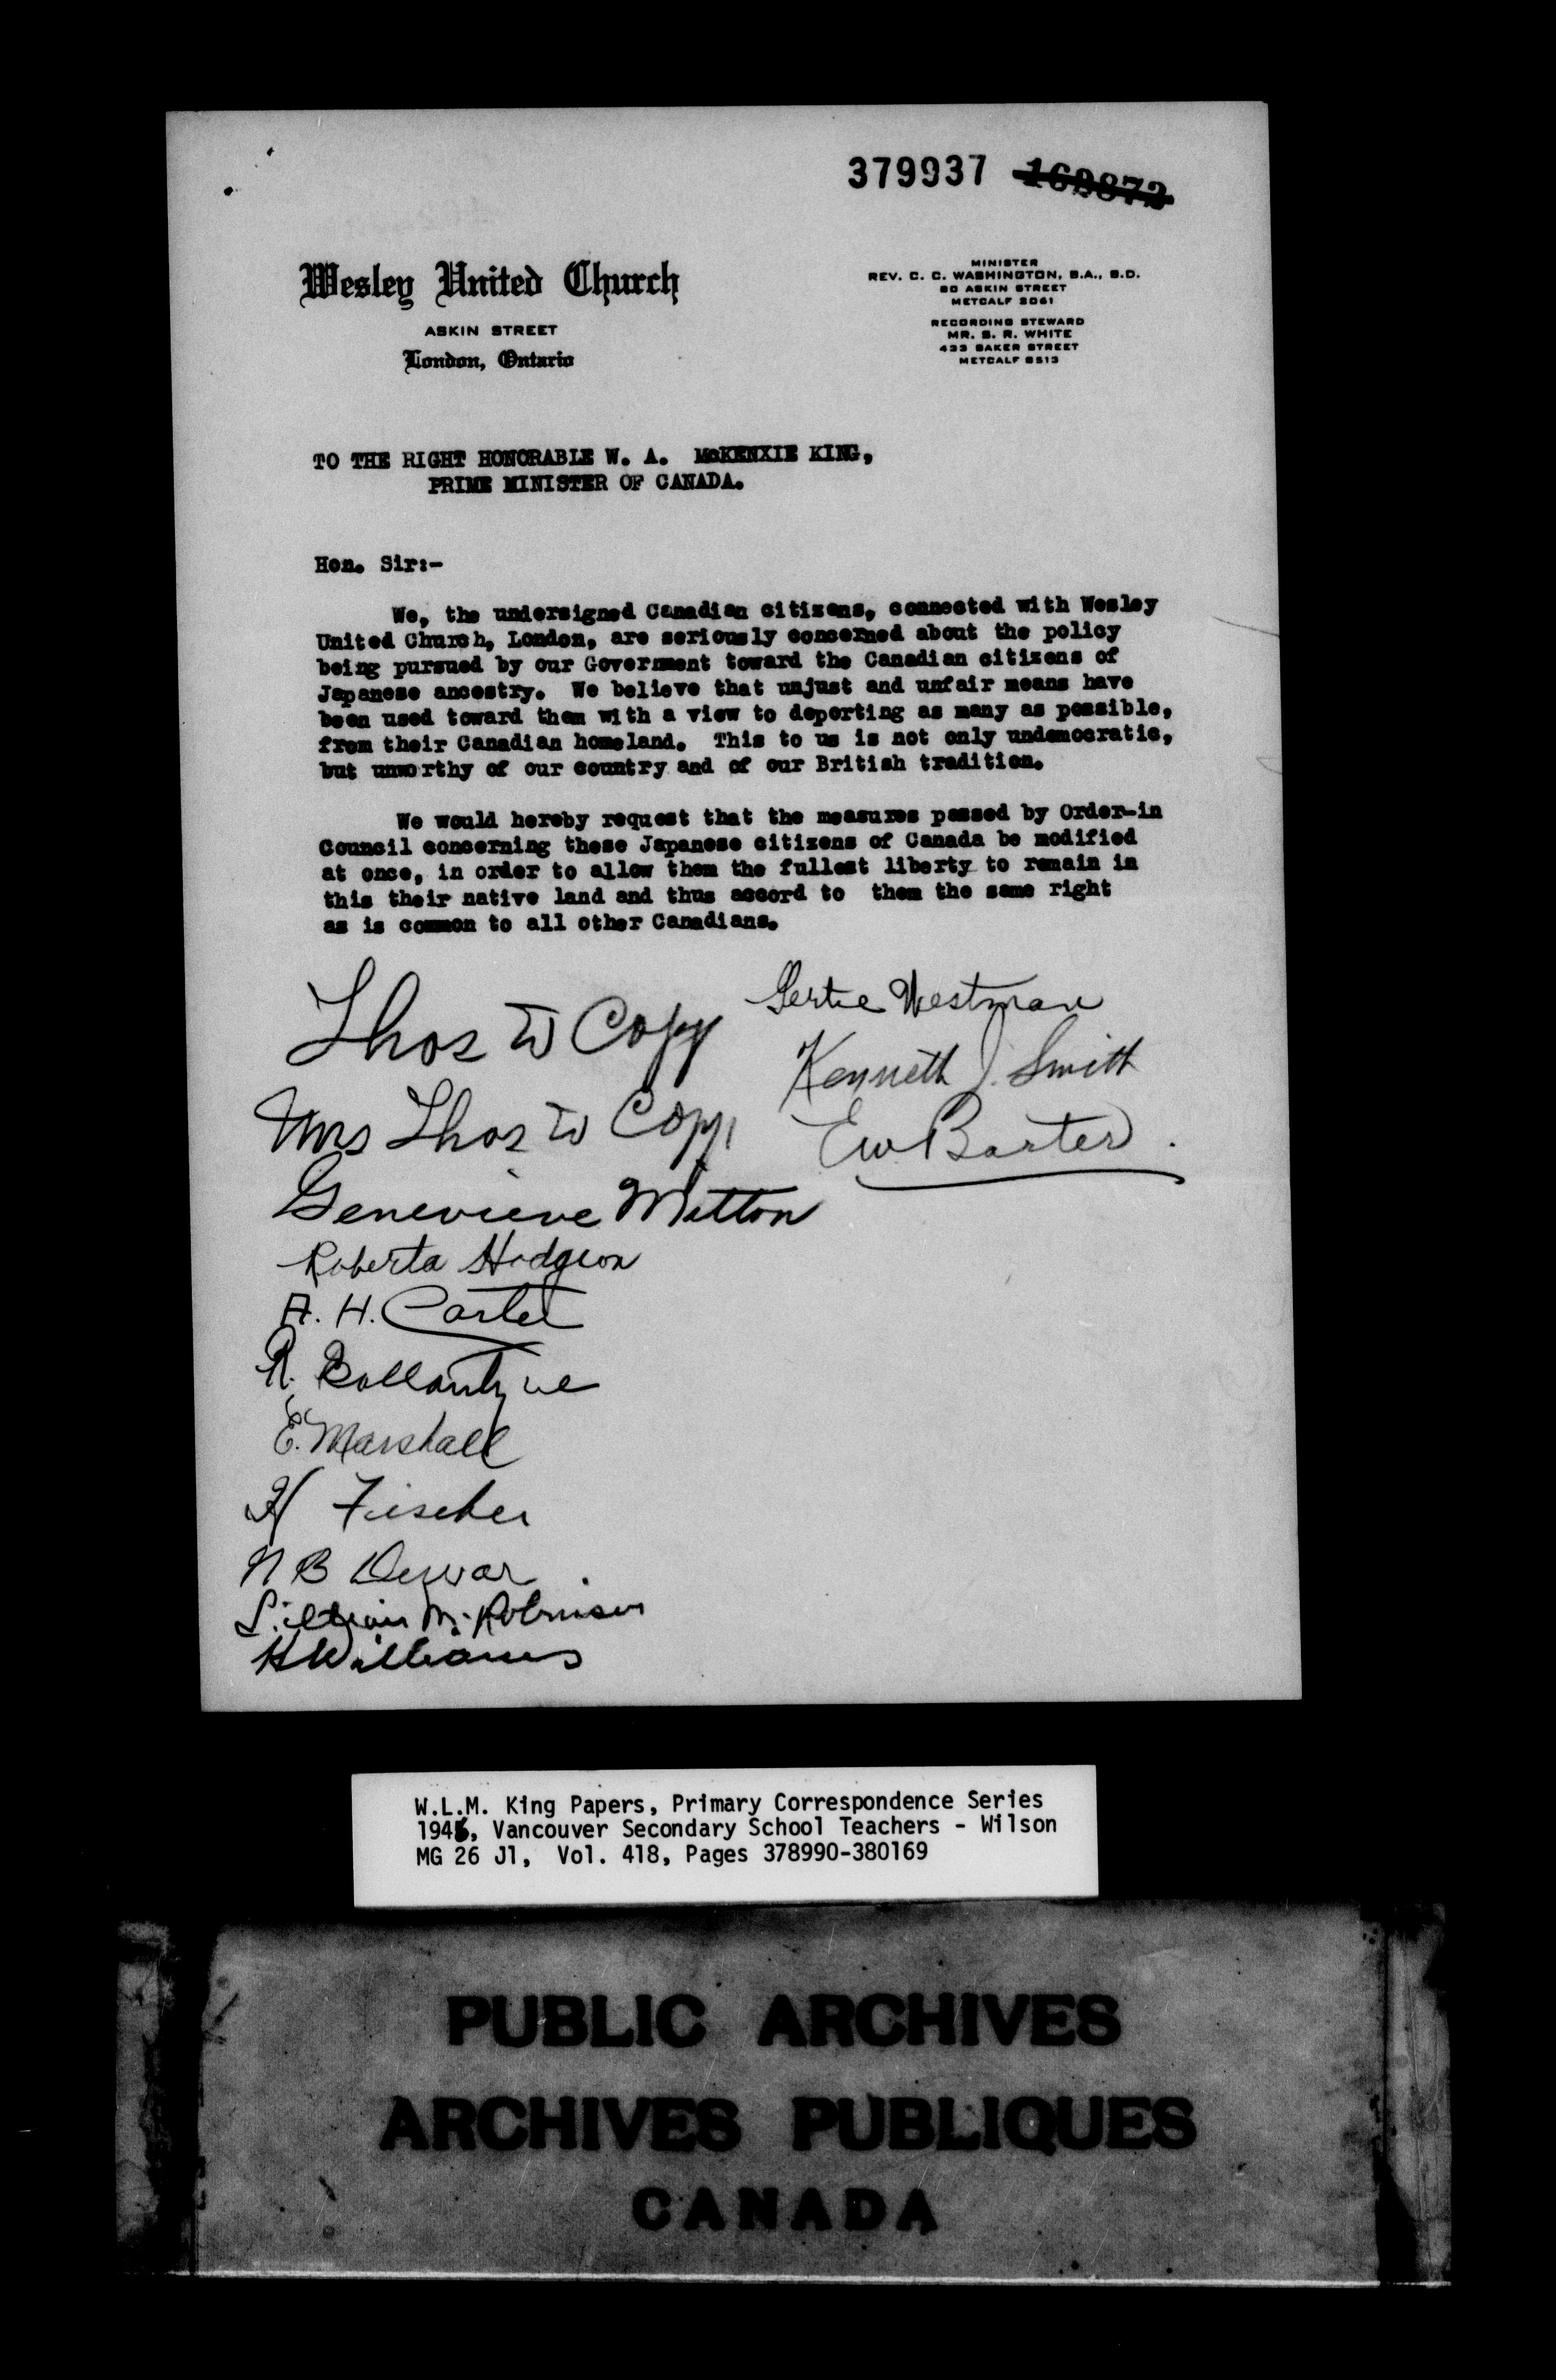 379937 169873
Wesley United Church
ASKIN STREET
London, Ontario
MINISTER
REV. C. C. WASHINGTON, B.A., B.D.
80 ASKIN STREET
METCALF
RECORDING STEWARD
MR. S. R. WHITE
433 BAKER STREET
METCALF
TO THE RIGHT HONORABLE W. A. McKENXIE KING,
PRIME MINISTER OF CANADA.
Hon. Sir:-
We, the undersigned Canadian citizens, connected with Wesley
United Church, London, are seriously concerned about the policy
being pursued by our Government toward the Canadian citizens of
Japanese ancestry. We believe that unjust and unfair means have
been used toward them with a view to deporting as many as possible,
from their Canadian homeland. This to us is not only undemocratic,
but unworthy of our country and of our British tradition.
We would hereby request that the measures passed by Order-in
Council concerning these Japanese citizens of Canada be modified
at once, in order to allow them the fullest liberty to remain in
this their native land and thus accord to them the same right
as is common to all other Canadians.
Thos W Copp
Mrs Thos W Copp
Genevieve Mitton
Roberta Hodgson
A. H. Carter
R. Ballantyne
E. Marshall
H Fischer
N B Dewar
Lillian M. Robinson
H Williams
Gertie Westman
Kenneth J. Smith
EW Barter.
W.L.M. King Papers, Primary Correspondence Series
1945, Vancouver Secondary School Teachers - Wilson
MG 26 J1, Vol. 418, Pages 378990-380169
PUBLIC ARCHIVES
ARCHIVES PUBLIQUES
CANADA